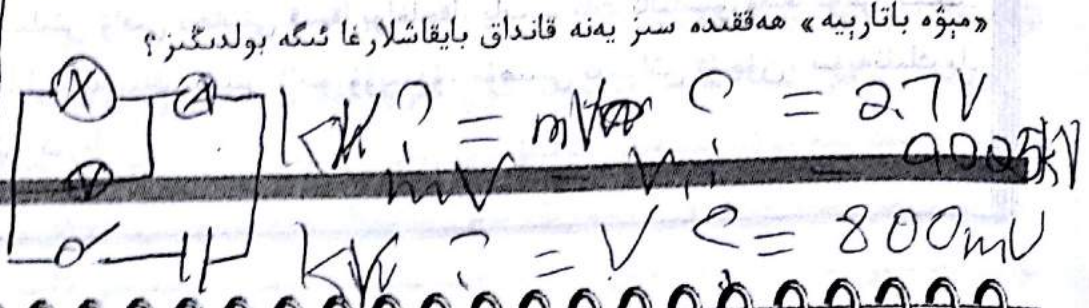 «مېۋە باتارېيە» ھەققىدە سىز يەنە قانداق بايقاشلارغا ئىگە بولدىڭىز؟
kV ? = mV ? = 2.7V
mV = V ? = 0.005kV
kV ? = V ? = 800mV